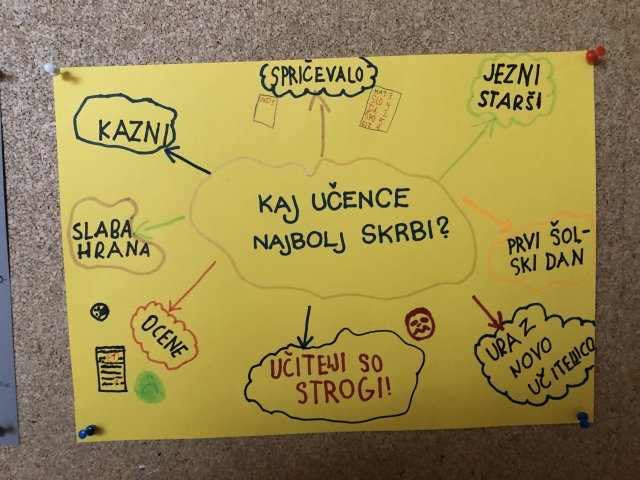 SPRIČEVALO
JEZNI
STARŠI
KAZNI
KAJ UČENCE
NAJBOLJ SKRBI?
SLABA
HRANA
PRVI ŠOL-
SKI DAN
OCENE
UČITELJI SO
STROGI!
URA Z
NOVO
UČITELJICO